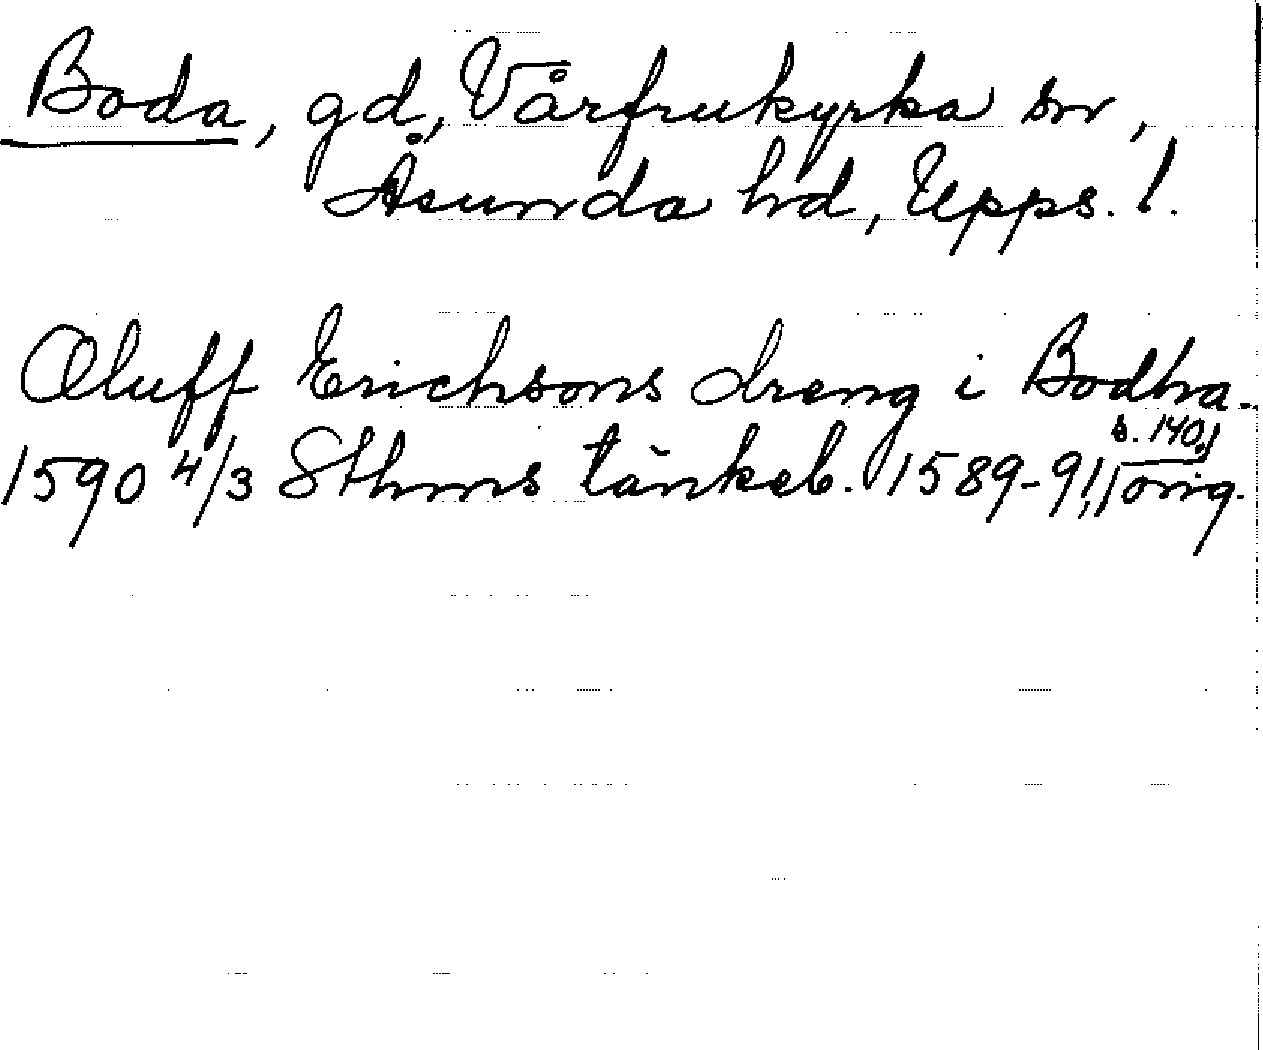 Boda, gd, Vårfrukyrka sn,
Åsunda hd, Upps. l.
Oluff Erichsons dreng i Bodha.
s. 140,
1590 4/3 Sthms tänkeb. 1589-91, orig.